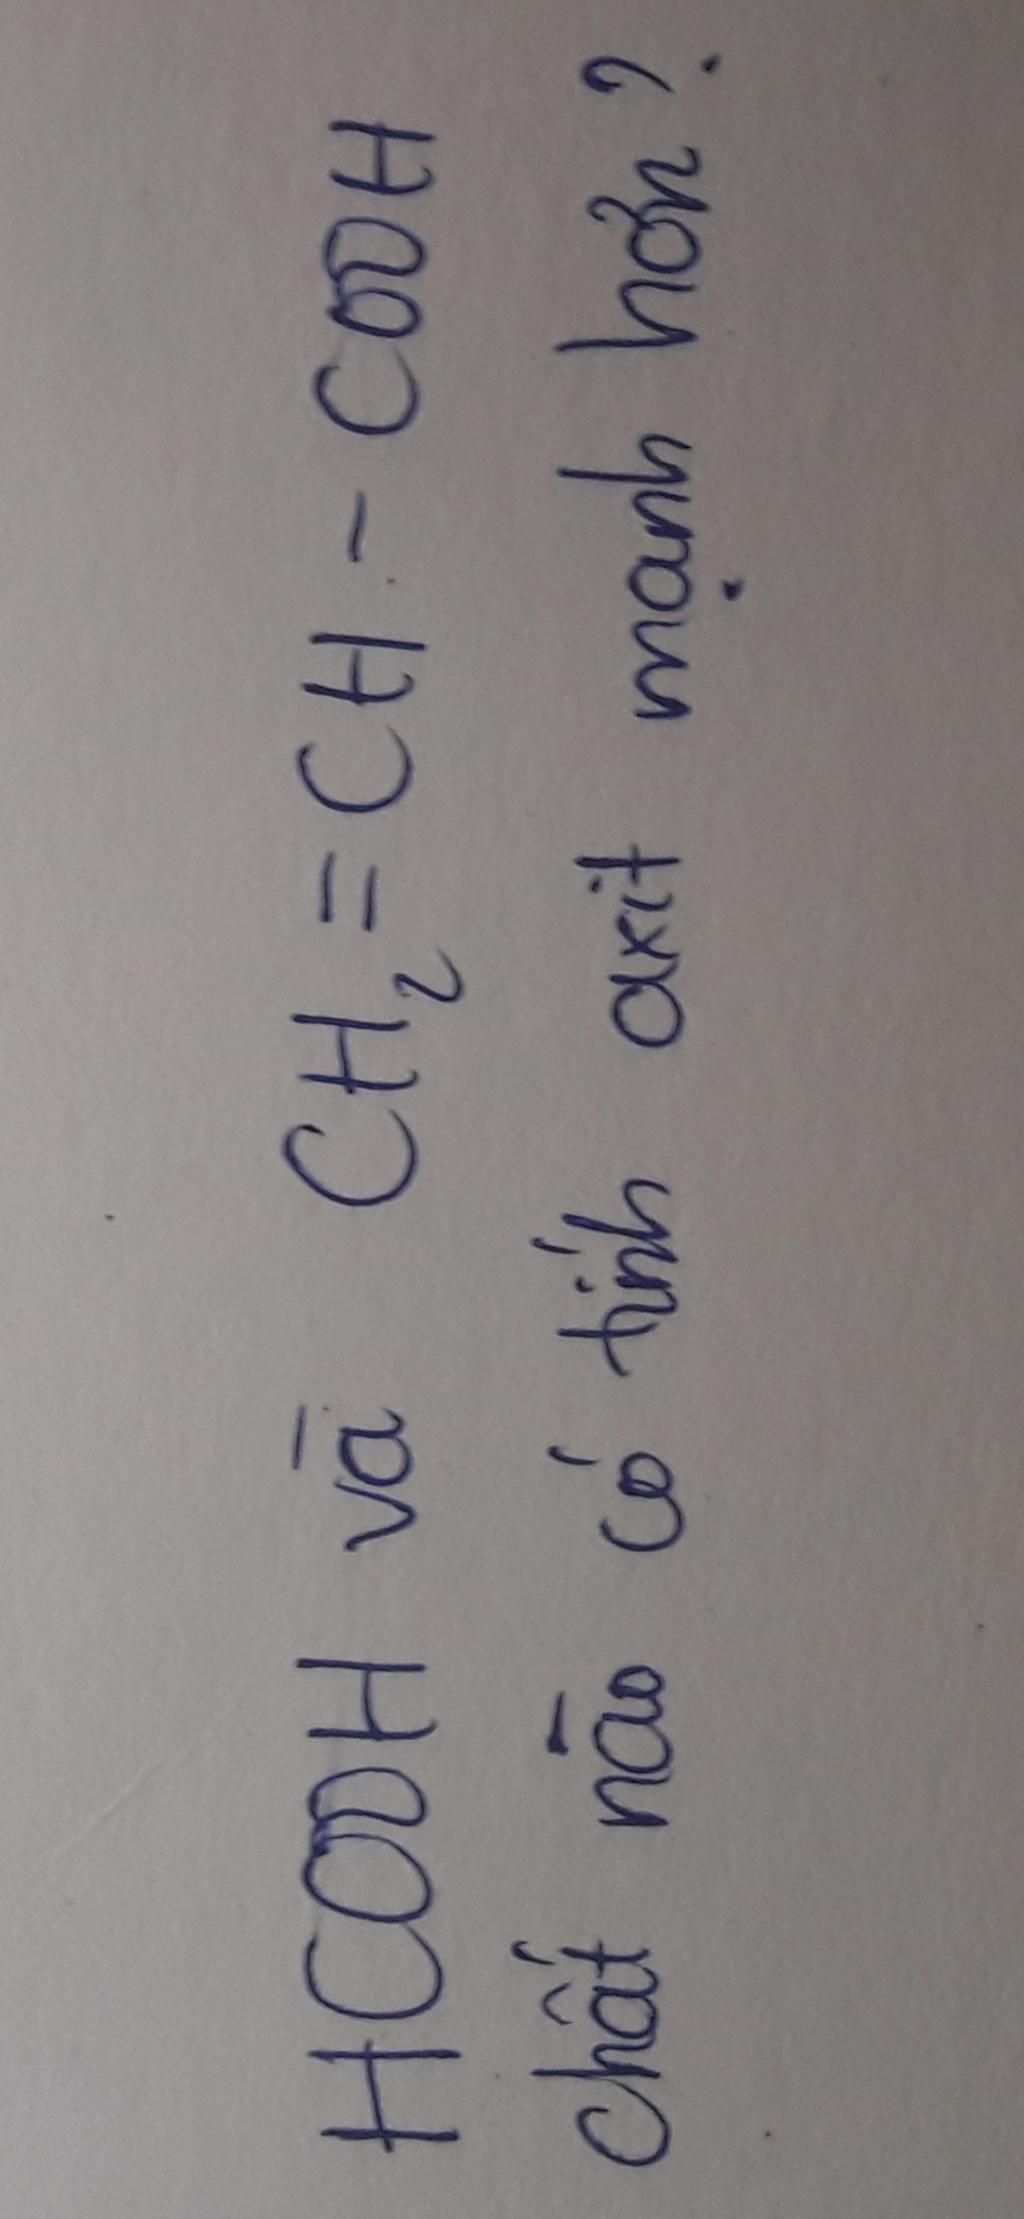 HCOOH và CH₂=CH-COOH
Chất nào có tính axit mạnh hơn?